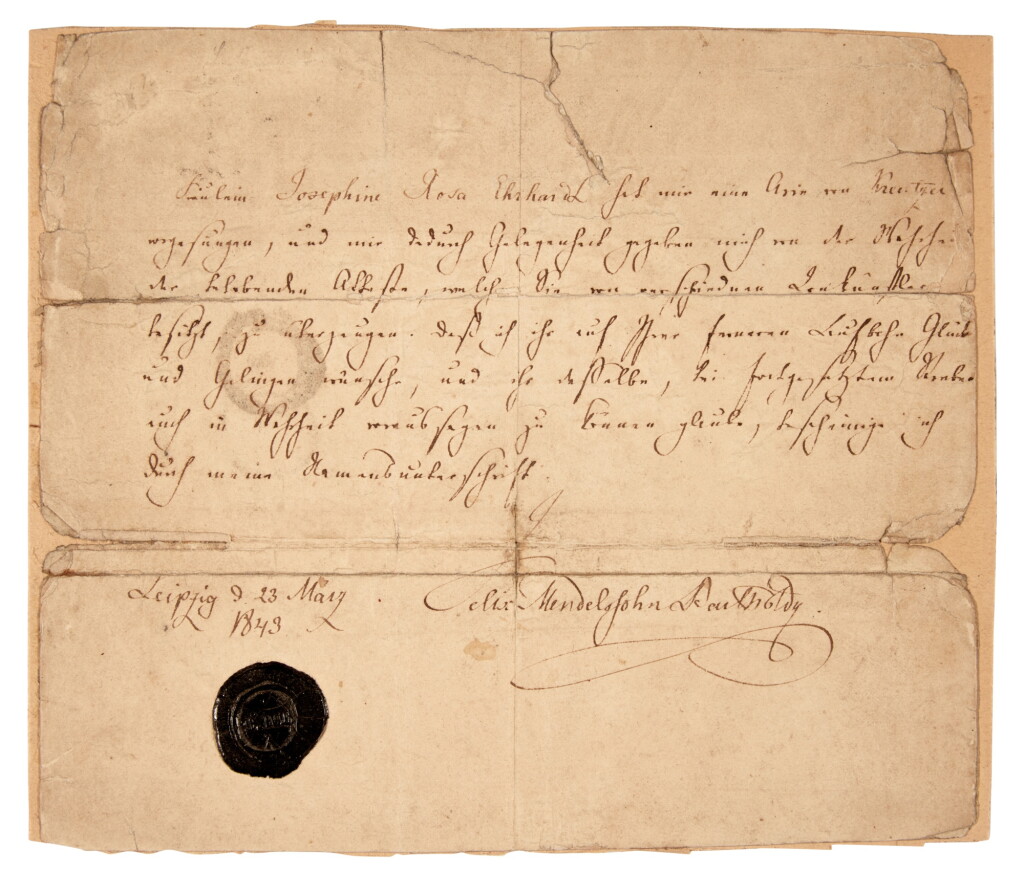 Fräulein Josephine Rosa Ehrhardt hat mir eine Arie von Kreutzer
vorgesungen, und mir dadurch Gelegenheit gegeben mich von der Wahrheit
der belobenden Atteste, welche Sie von verschiednen Tonkünstlern
besitzt, zu überzeugen. Daß ich ihr auf Ihrer ferneren Laufbahn Glück
und Gelingen wünsche, und ihr dasselbe, bei fortgesetztem Streben
auch in Wahrheit voraussagen zu können glaube, bescheinige ich
durch meine Namensunterschrift.
Leipzig d 23 März
1843
Felix Mendelssohn Bartholdy.